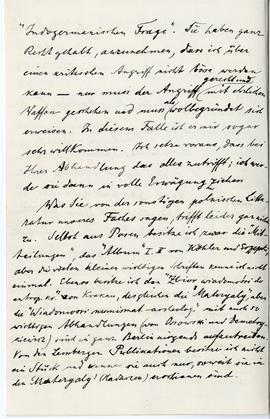 "Indogermanischen Frage". Sie haben ganz
Recht gehabt, anzunehmen, dass ich über
einen kritischen Angriff nicht böse werden
kann — nur muss der Angriff mit ehrlichen
Waffen geschehen und muss als wolbegründet sich
erweisen. In diesem Falle ist er mir sogar
sehr willkommen. Ich setze voraus, dass bei
Ihrer Abhandlung das alles zutrifft; ich wer-
de sie dann in volle Erwägung ziehen
Was Sie von der sonstigen polnischen Litte-
ratur unseres Faches sagen, trifft leider gar nicht
zu. Selbst aus Posen besitze ich zwar die "Mit-
teilungen", das "Album" I. II von Köhler und
aber die vielen kleinen wichtigen Schriften kenne ich nicht
einmal. Ebenso besitze ich den "Zbiór wiadomości do
antrop. kr." von Krakau, desgleichen die "Materyały" aber
die "Wiadomości numizmat. archeolog." mit auch so
wichtigen Abhandlungen (von Ossowski und Demetry-
kiewicz) sind in ganz Berlin nirgends aufzutreiben
Von den Lemberger Publikationen besitze ich nicht
ein Stück und kenne sie auch nur, soweit sie in
den Materyały (Hadaczek) erschienen sind.